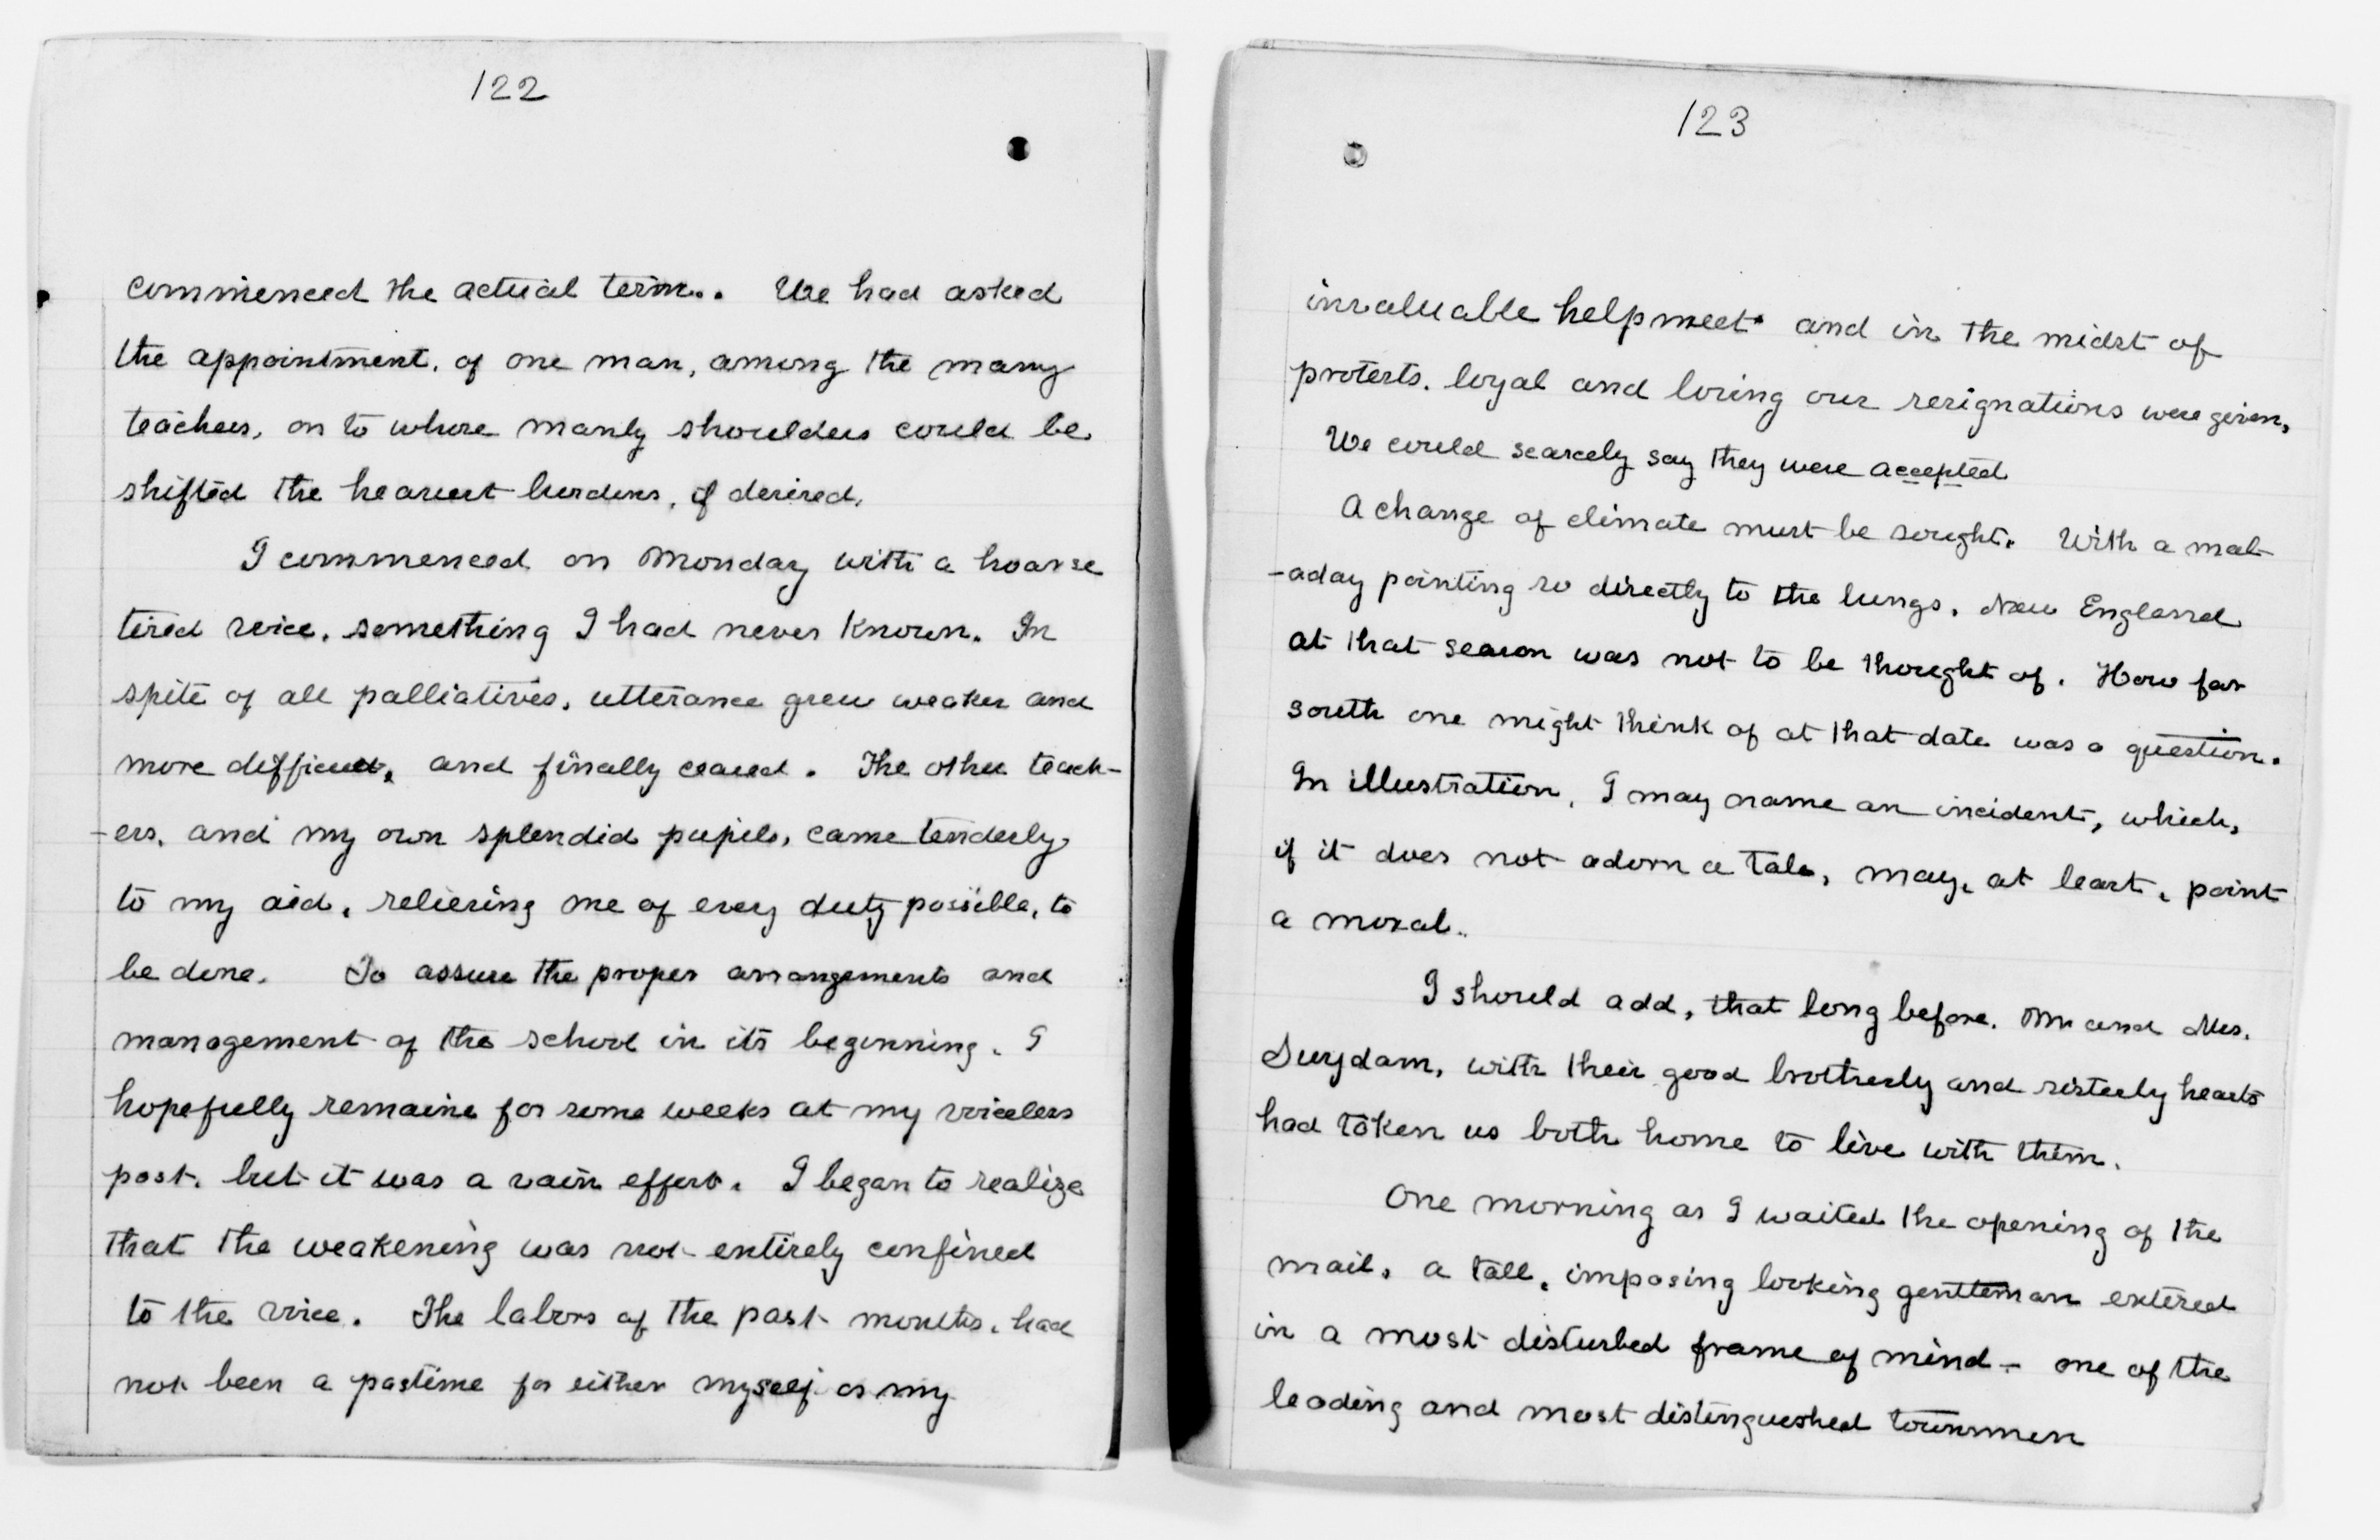 122
commenced the actual term. We had asked
the appointment, of one man, among the many
teachers, on to whose manly shoulders could be
shifted the heaviest burdens, if desired.
I commenced on Monday with a hoarse
tired voice, something I had never known. In
spite of all palliatives, utterance grew weaker and
more difficult, and finally ceased. The other teach-
-ers, and my own splendid pupils, came tenderly
to my aid, relieving me of every duty possible, to
be done. To assure the proper arrangements and
management of the school in its beginning, I
hopefully remaine for some weeks at my voiceless
post, but it was a vain effort. I began to realize
that the weakening was not entirely confined
to the voice. The labors of the past months, had
not been a pastime for either myself or my
123
invaluable helpmeet and in the midst of
protests, loyal and loving our resignations were given,
We could scarcely say they were accepted
A change of climate must be sought. With a mal-
-aday pointing so directly to the lungs, New England
at that season was not to be thought of. How far
south one might think of at that date was a question.
In illustration, I may name an incident, which,
if it does not adorn a tale, may, at least, point
a moral.
I should add, that long before, Mr and Mrs.
Suydam, with their good brotherly and sisterly hearts
had taken us both home to live with them.
One morning as I waited the opening of the
mail, a tall, imposing looking gentleman entered
in a most disturbed frame of mind - one of the
leading and most distinguished townsmen